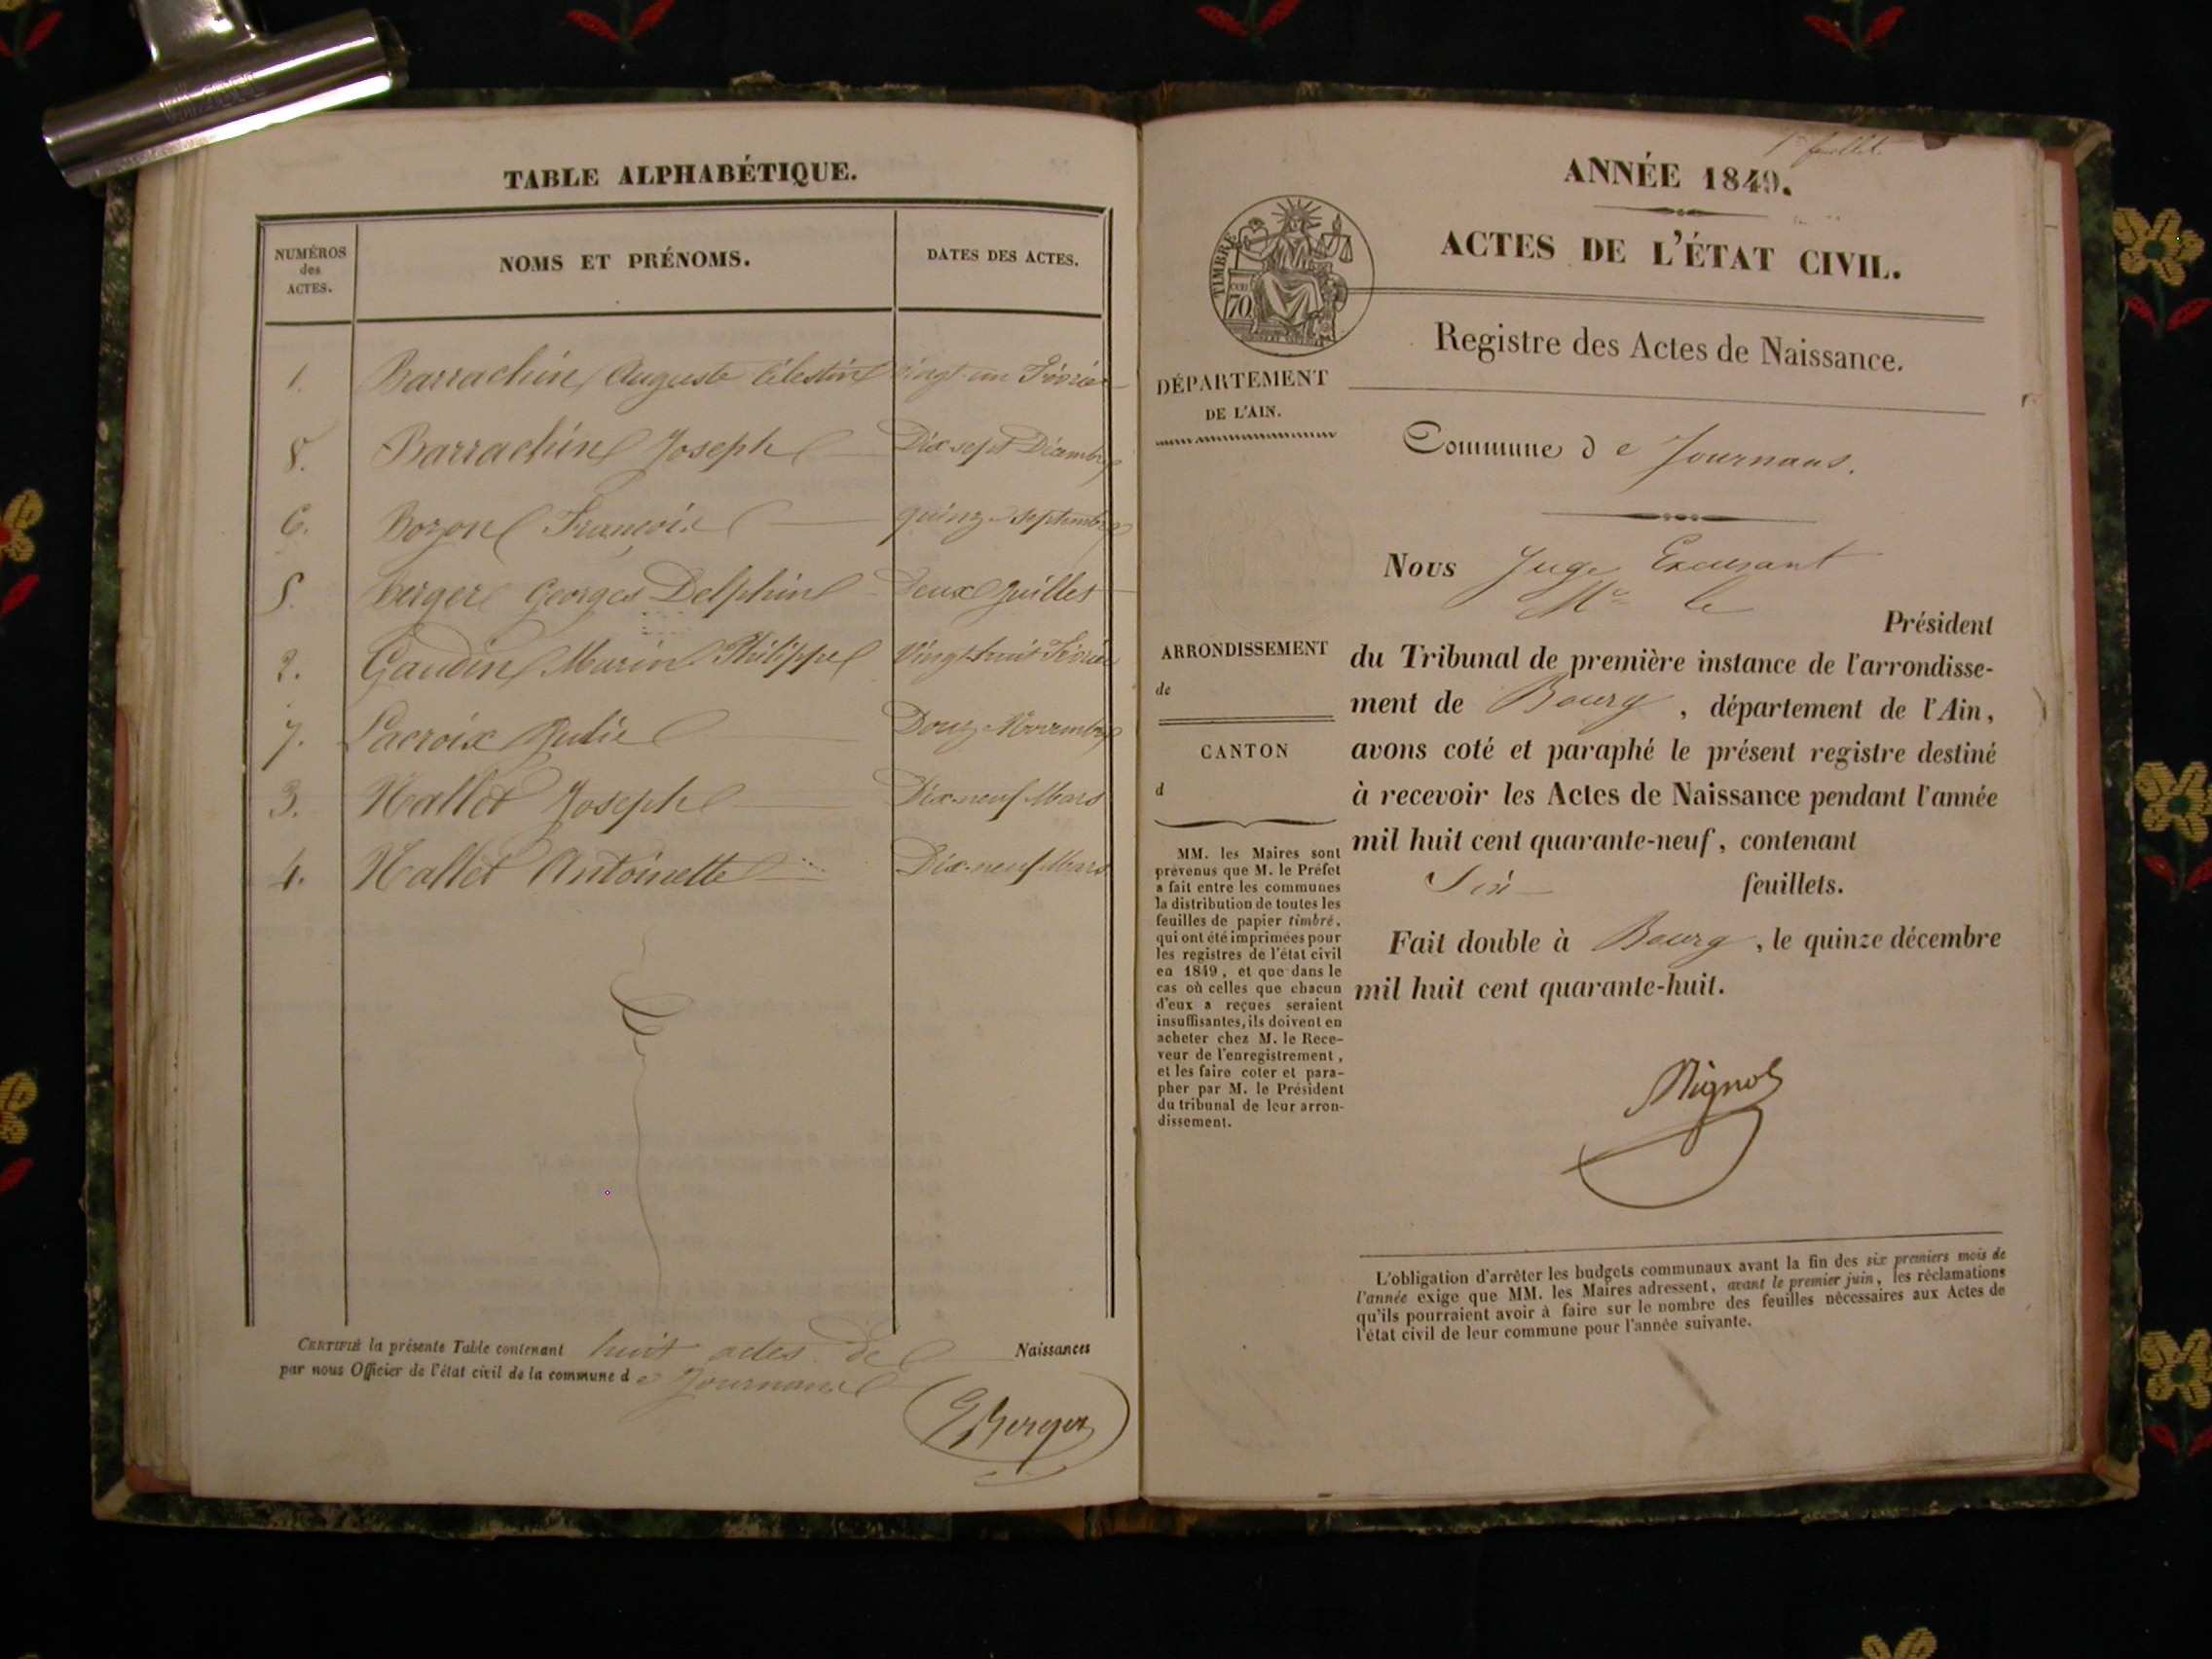 TABLE ALPHABÉTIQUE.
NUMÉROS
des
ACTES.
NOMS ET PRÉNOMS.
DATES DES ACTES.
1. Barrachin Auguste Célestin vingt-un Février
8. Barrachin Joseph Dix sept Décembre
6. Bozon François quinze Septembre
5. Berger Georges Delphin Deux Juillet
2. Gaudin Marin Philippe Vingt huit Février
7. Lacroix Julie Douze Novembre
3. Nallet Joseph Dix-neuf Mars
4. Nallet Antoinette Dix-neuf Mars
CERTIFIÉ la présente Table contenant huit actes de Naissances
par nous Officier de l'état civil de la commune de Journans
Berger
1er feuillet.
ANNÉE 1849.
ACTES DE L'ÉTAT CIVIL.
TIMBRE
70
Registre des Actes de Naissance.
DÉPARTEMENT
DE L'AIN.
Commune de Journans.
Nous Juge Excusant
Mr le
Président
ARRONDISSEMENT
de
CANTON
d
du Tribunal de première instance de l'arrondisse-
ment de Bourg, département de l'Ain,
avons coté et paraphé le présent registre destiné
à recevoir les Actes de Naissance pendant l'année
mil huit cent quarante-neuf, contenant
Six feuillets.
Fait double à Bourg, le quinze décembre
mil huit cent quarante-huit.
MM. les Maires sont
prévenus que M. le Préfet
a fait entre les communes
la distribution de toutes les
feuilles de papier timbré,
qui ont été imprimées pour
les registres de l'état civil
en 1849, et que dans le
cas où celles que chacun
d'eux a reçues seraient
insuffisantes, ils doivent en
acheter chez M. le Rece-
veur de l'enregistrement,
et les faire coter et para-
pher par M. le Président
du tribunal de leur arron-
dissement.
L'obligation d'arrêter les budgets communaux avant la fin des six premiers mois de
l'année exige que MM. les Maires adressent, avant le premier juin, les réclamations
qu'ils pourraient avoir à faire sur le nombre des feuilles nécessaires aux Actes de
l'état civil de leur commune pour l'année suivante.